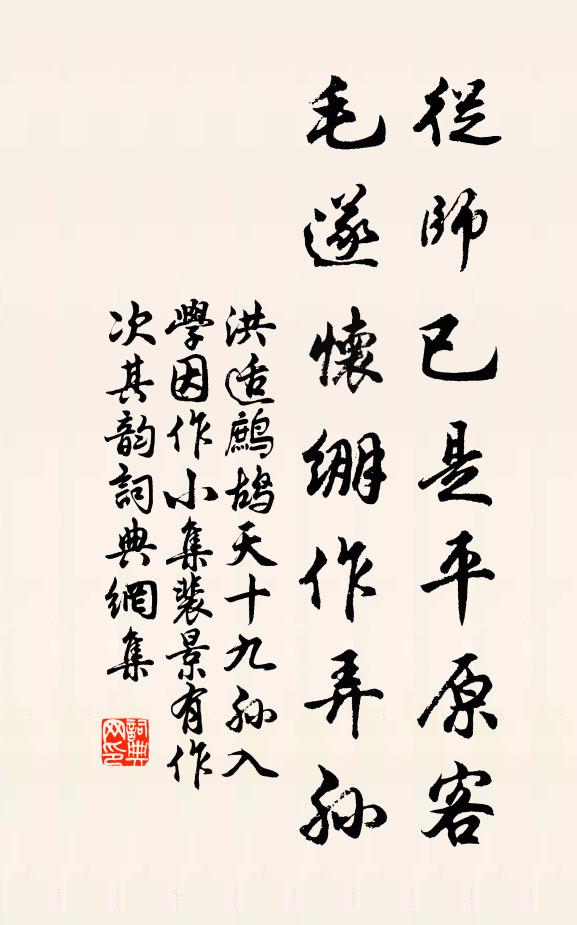 從師已是平原客
毛遂懷綳作弄孫
洪适鷓鴣天十九孫入
學因作小集裴景有作
次其韵詞典網集
詞典網印